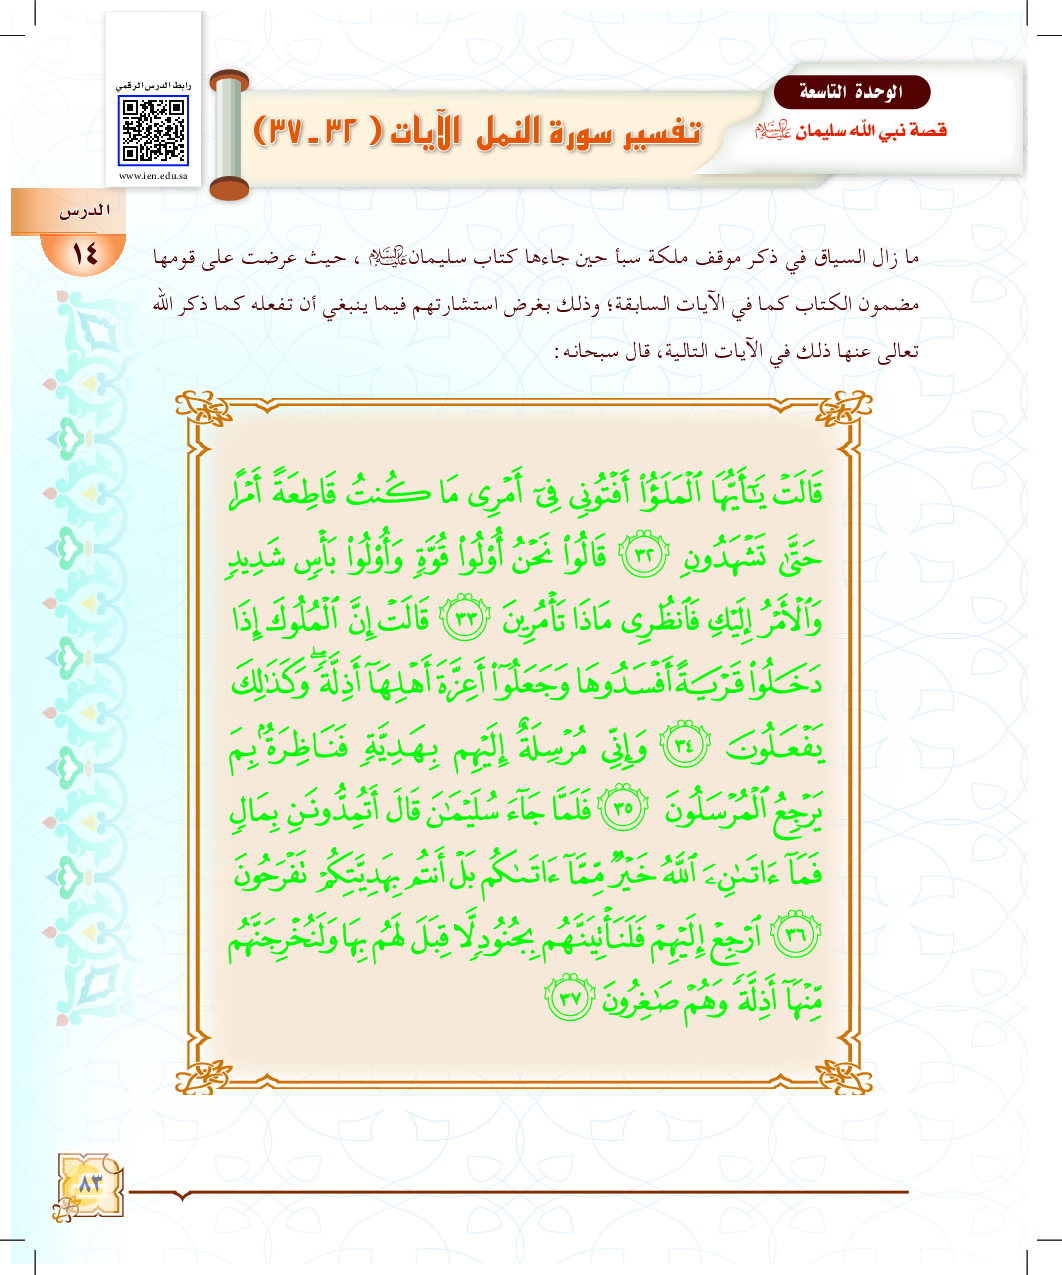 رابط الدرس الرقمي
www.ien.edu.sa
الوحدة التاسعة
قصة نبي الله سليمان عليه السلام
تفسير سورة النمل الآيات ( ٣٢ ـ ٣٧)
الدرس
١٤
ما زال السياق في ذكر موقف ملكة سبأ حين جاءها كتاب سليمان عليه السلام ، حيث عرضت على قومها
مضمون الكتاب كما في الآيات السابقة؛ وذلك بغرض استشارتهم فيما ينبغي أن تفعله كما ذكر الله
تعالى عنها ذلك في الآيات التالية، قال سبحانه:
قَالَتْ يَٰٓأَيُّهَا ٱلْمَلَؤُا۟ أَفْتُونِى فِىٓ أَمْرِى مَا كُنتُ قَاطِعَةً أَمْرًا
حَتَّىٰ تَشْهَدُونِ ٣٢ قَالُوا۟ نَحْنُ أُو۟لُوا۟ قُوَّةٍ وَأُو۟لُوا۟ بَأْسٍ شَدِيدٍ
وَٱلْأَمْرُ إِلَيْكِ فَٱنظُرِى مَاذَا تَأْمُرِينَ ٣٣ قَالَتْ إِنَّ ٱلْمُلُوكَ إِذَا
دَخَلُوا۟ قَرْيَةً أَفْسَدُوهَا وَجَعَلُوٓا۟ أَعِزَّةَ أَهْلِهَآ أَذِلَّةً ۖ وَكَذَٰلِكَ
يَفْعَلُونَ ٣٤ وَإِنِّى مُرْسِلَةٌ إِلَيْهِم بِهَدِيَّةٍ فَنَاظِرَةٌۢ بِمَ
يَرْجِعُ ٱلْمُرْسَلُونَ ٣٥ فَلَمَّا جَآءَ سُلَيْمَٰنَ قَالَ أَتُمِدُّونَنِ بِمَالٍ
فَمَآ ءَاتَىٰنِۦَ ٱللَّهُ خَيْرٌ مِّمَّآ ءَاتَىٰكُم بَلْ أَنتُم بِهَدِيَّتِكُمْ تَفْرَحُونَ
٣٦ ٱرْجِعْ إِلَيْهِمْ فَلَنَأْتِيَنَّهُم بِجُنُودٍ لَّا قِبَلَ لَهُم بِهَا وَلَنُخْرِجَنَّهُم
مِّنْهَآ أَذِلَّةً وَهُمْ صَٰغِرُونَ ٣٧
٨٣